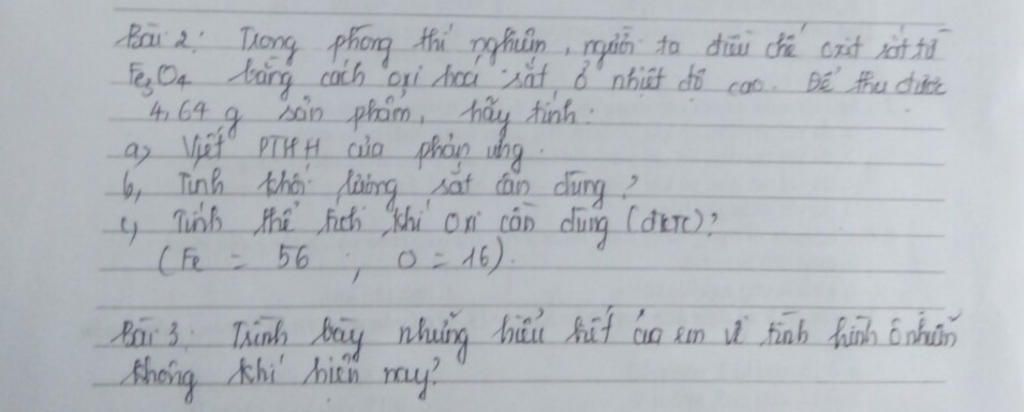 Bài 2: Trong phòng thí nghiệm, người ta điều chế oxit sắt từ
Fe3O4 bằng cách oxi hoá sắt ở nhiệt độ cao. Để thu được
4,64 g sản phẩm, hãy tính:
a) Viết PTHH của phản ứng.
b, Tính khối lượng sắt cần dùng?
c) Tính thể tích khí oxi cần dùng (đktc)?
(Fe = 56 , O = 16).
Bài 3: Trình bày những hiểu biết của em về tình hình ô nhiễm
không khí hiện nay?